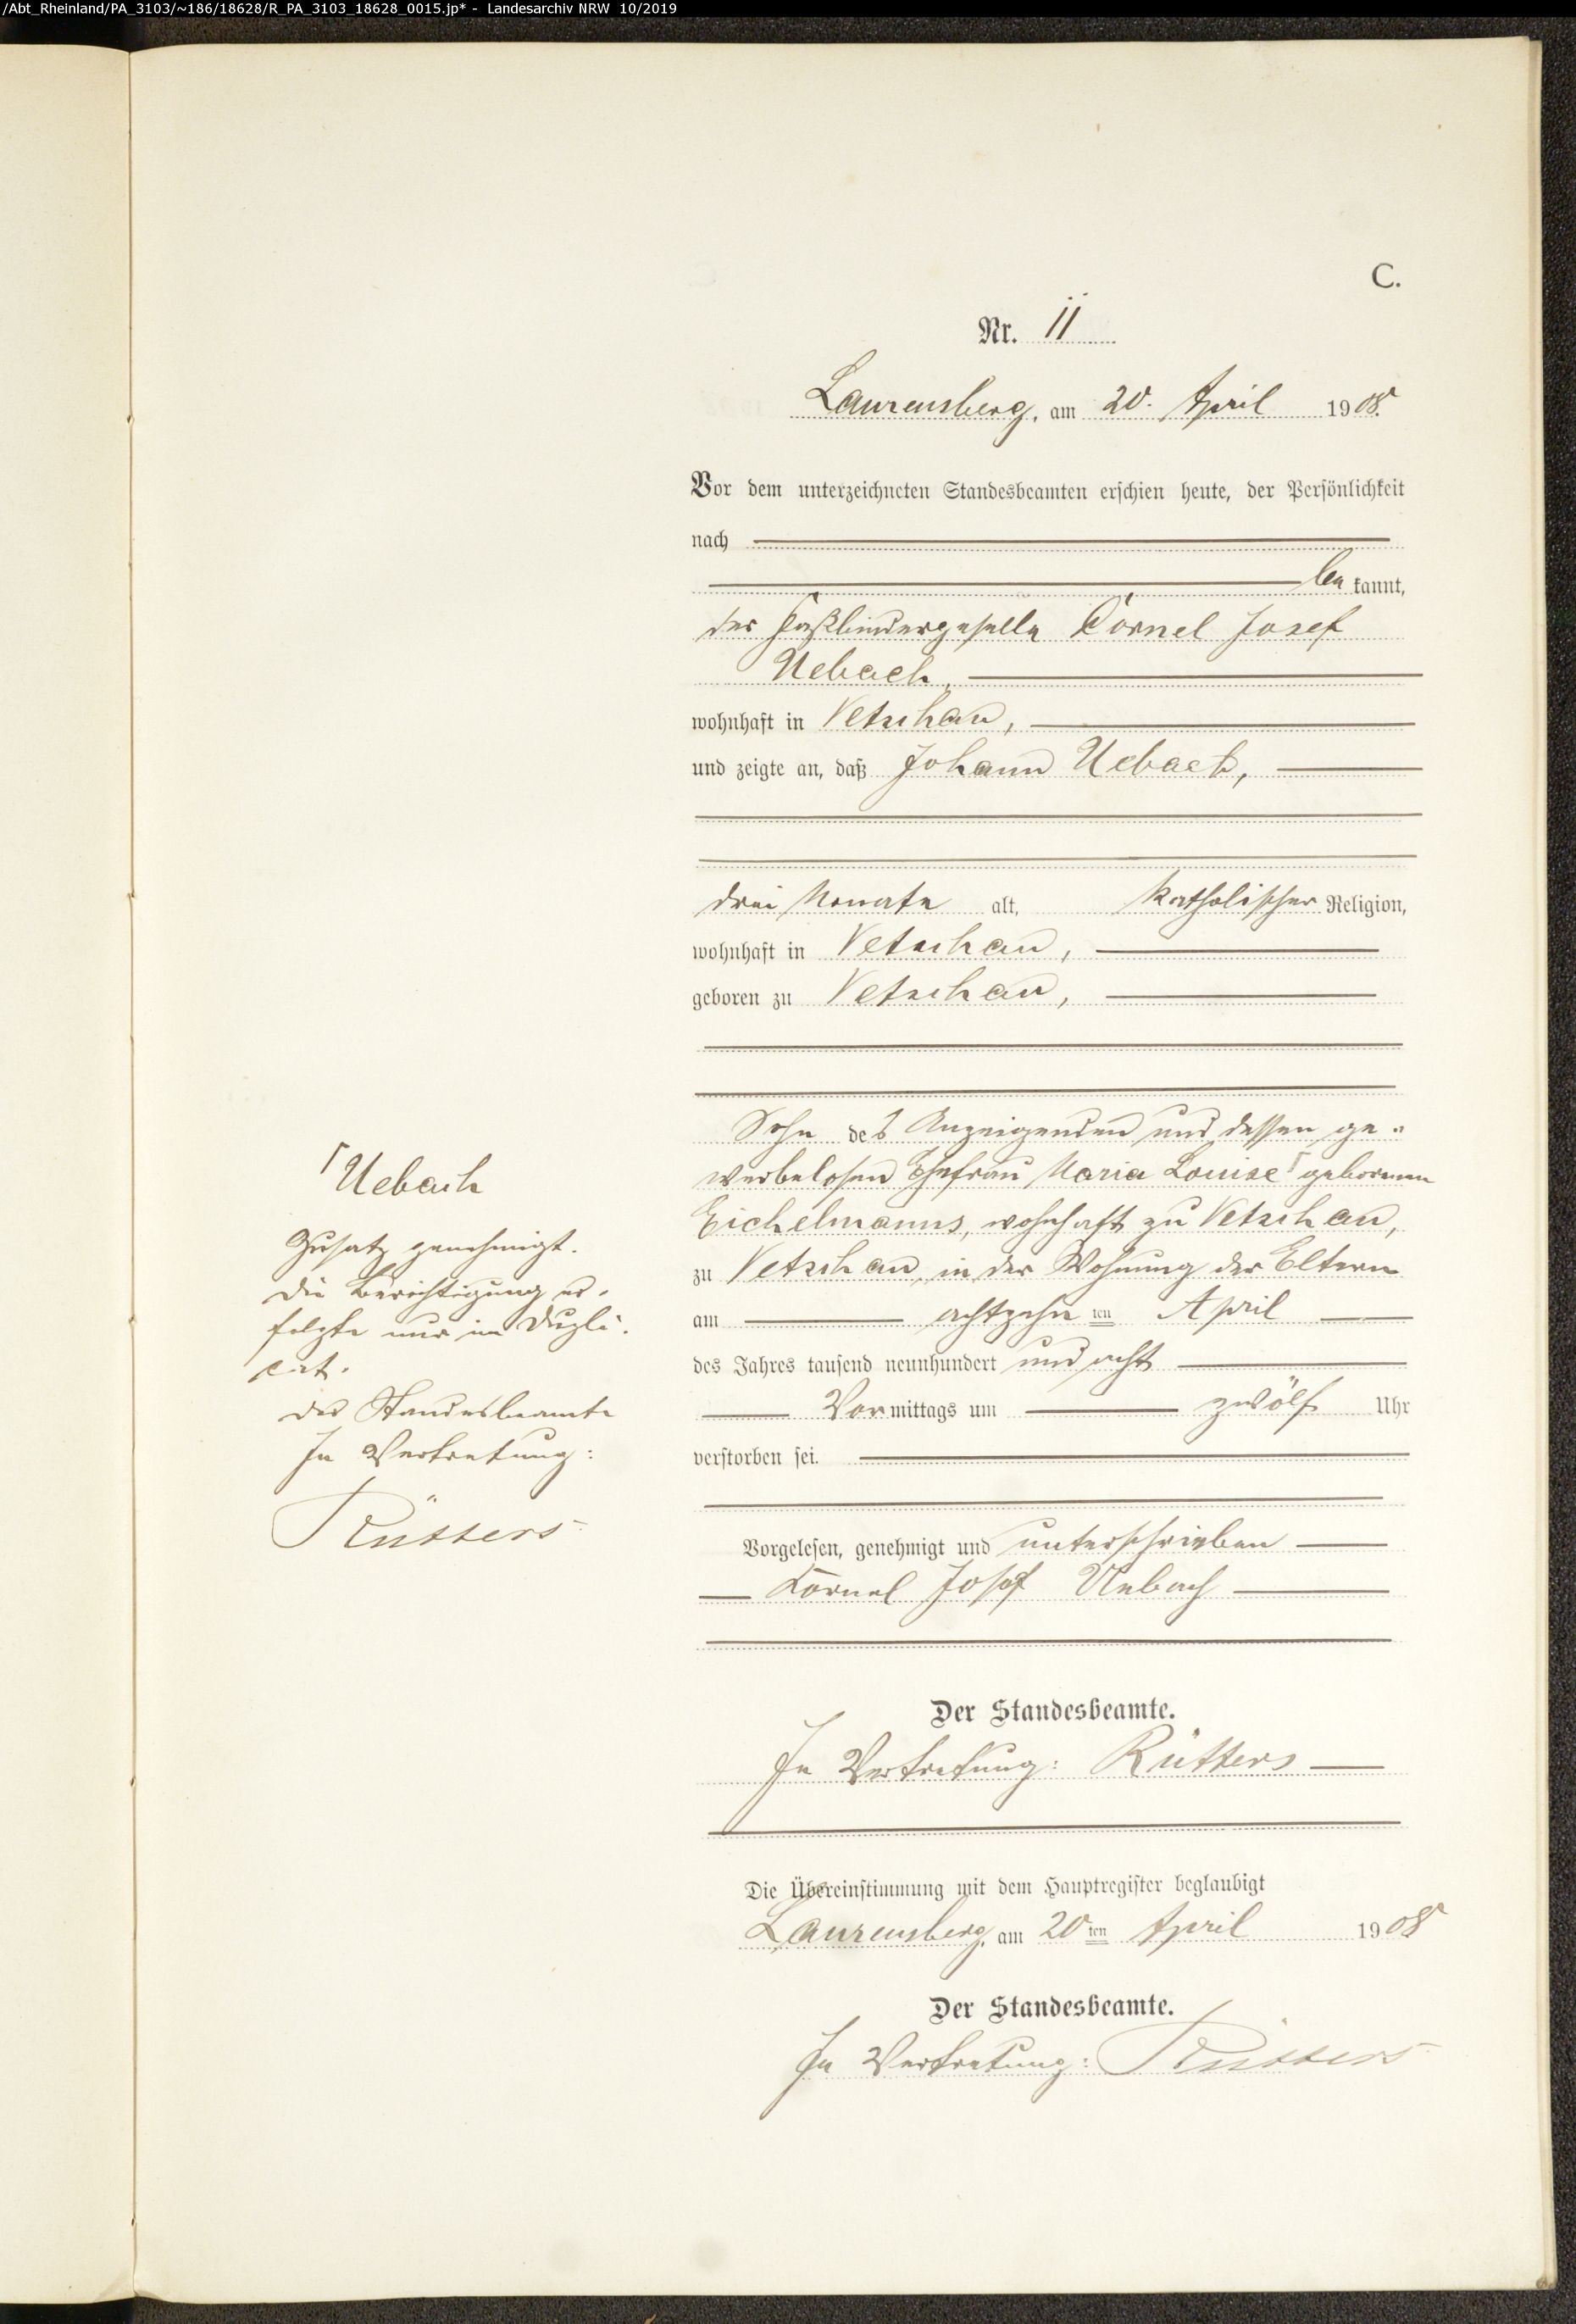 /Abt_Rheinland/PA_3103/~186/18628/R_PA_3103_18628_0015.jp* - Landesarchiv NRW 10/2019
C.
Nr. 11
Laurensberg, am 20. April 1908.
Vor dem unterzeichneten Standesbeamten erschien heute, der Persönlichkeit
nach
bekannt,
der Faßbindergeselle Cornel Josef
Uebach,
wohnhaft in Vetschau,
und zeigte an, daß Johann Uebach,
drei Monate alt, katholischer Religion,
wohnhaft in Vetschau,
geboren zu Vetschau,
Sohn des Anzeigenden und dessen ge-
werbelosen Ehefrau Maria Louise ⌈ geborenen
Eichelmanns, wohnhaft zu Vetschau,
zu Vetschau, in der Wohnung der Eltern
am achtzehnten April
des Jahres tausend neunhundert und acht
Vormittags um zwölf Uhr
verstorben sei.
Vorgelesen, genehmigt und unterschrieben
Kornel Josef Uebach
Der Standesbeamte.
In Vertretung: Rütters
Die Übereinstimmung mit dem Hauptregister beglaubigt
Laurensberg, am 20ten April 1908
Der Standesbeamte.
In Vertretung: Rütters
⌈ Uebach
Zusatz genehmigt.
Die Berichtigung er-
folgte nur im Dupli-
cat.
Der Standesbeamte
In Vertretung:
Rütters